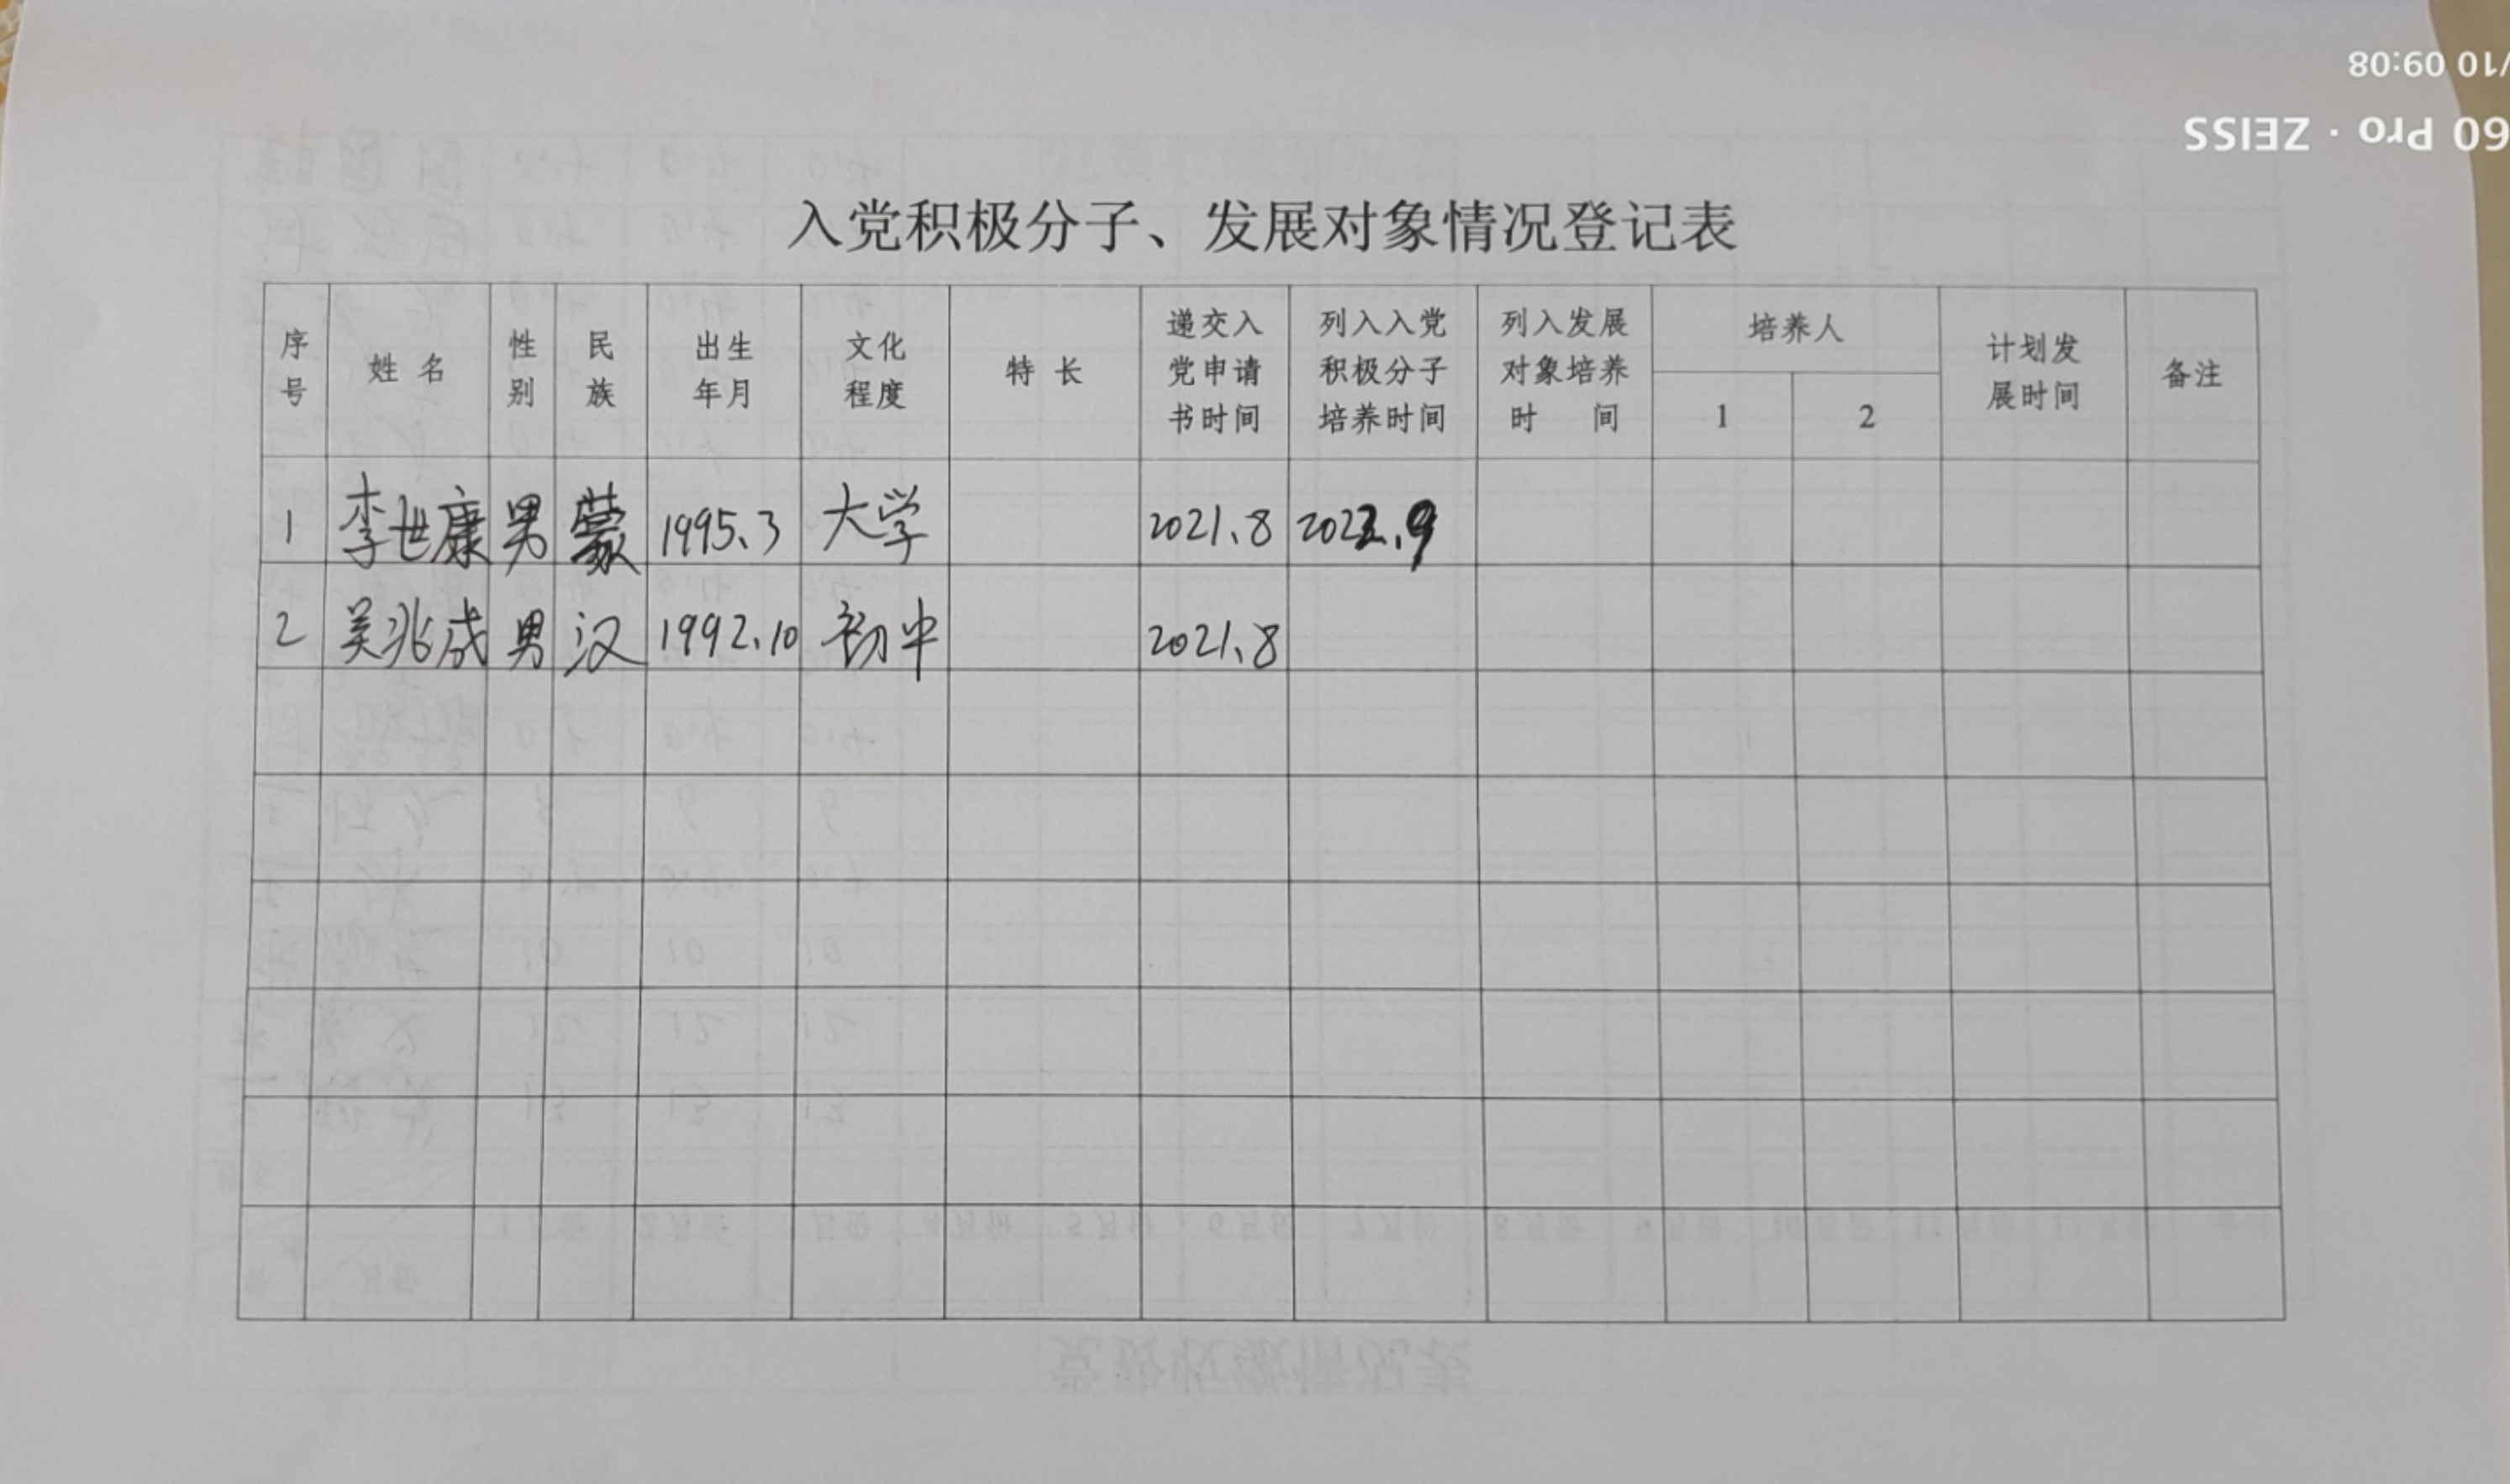 /10 09:08
60 Pro · ZEISS
入党积极分子、发展对象情况登记表
序号 姓名 性别 民族 出生年月 文化程度 特长 递交入党申请书时间 列入入党积极分子培养时间 列入发展对象培养时间 培养人 1 2 计划发展时间 备注
1 李世康 男 蒙 1995.3 大学 2021.8 2022.9
2 吴兆成 男 汉 1992.10 初中 2021.8
党费收缴情况表